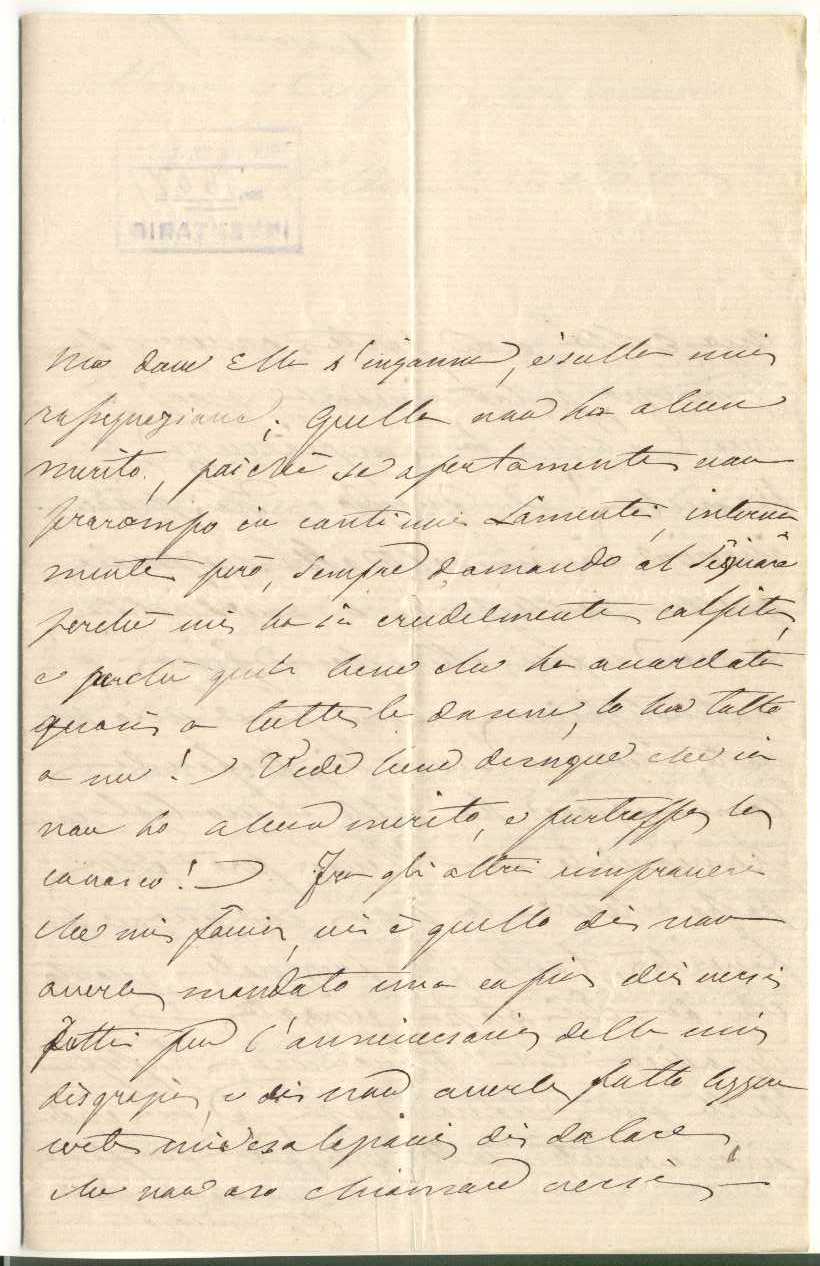 Ma dove Ella s'inganna, è sulla mia
rassegnazione; Quella non ha alcun
merito, poichè se apertamente non
prorompo in continui lamenti, interna
mente però, sempre domando al Signore
perchè mi ha sì crudelmente colpita,
e perchè quel bene che ha accordato
quasi a tutte le donne, lo ha tolto
a me! Vede bene dunque che io
non ho alcun merito, e purtroppo lo
conosco! Fra gli altri rimproveri
che mi faccio, vi è quello di non
averle mandato una copia dei versi
fatti per l'anniversario della mia
disgrazia, e di non averle fatto leggere
certe mie esalazioni di dolore,
che non oso chiamare versi,
INVENTARIO